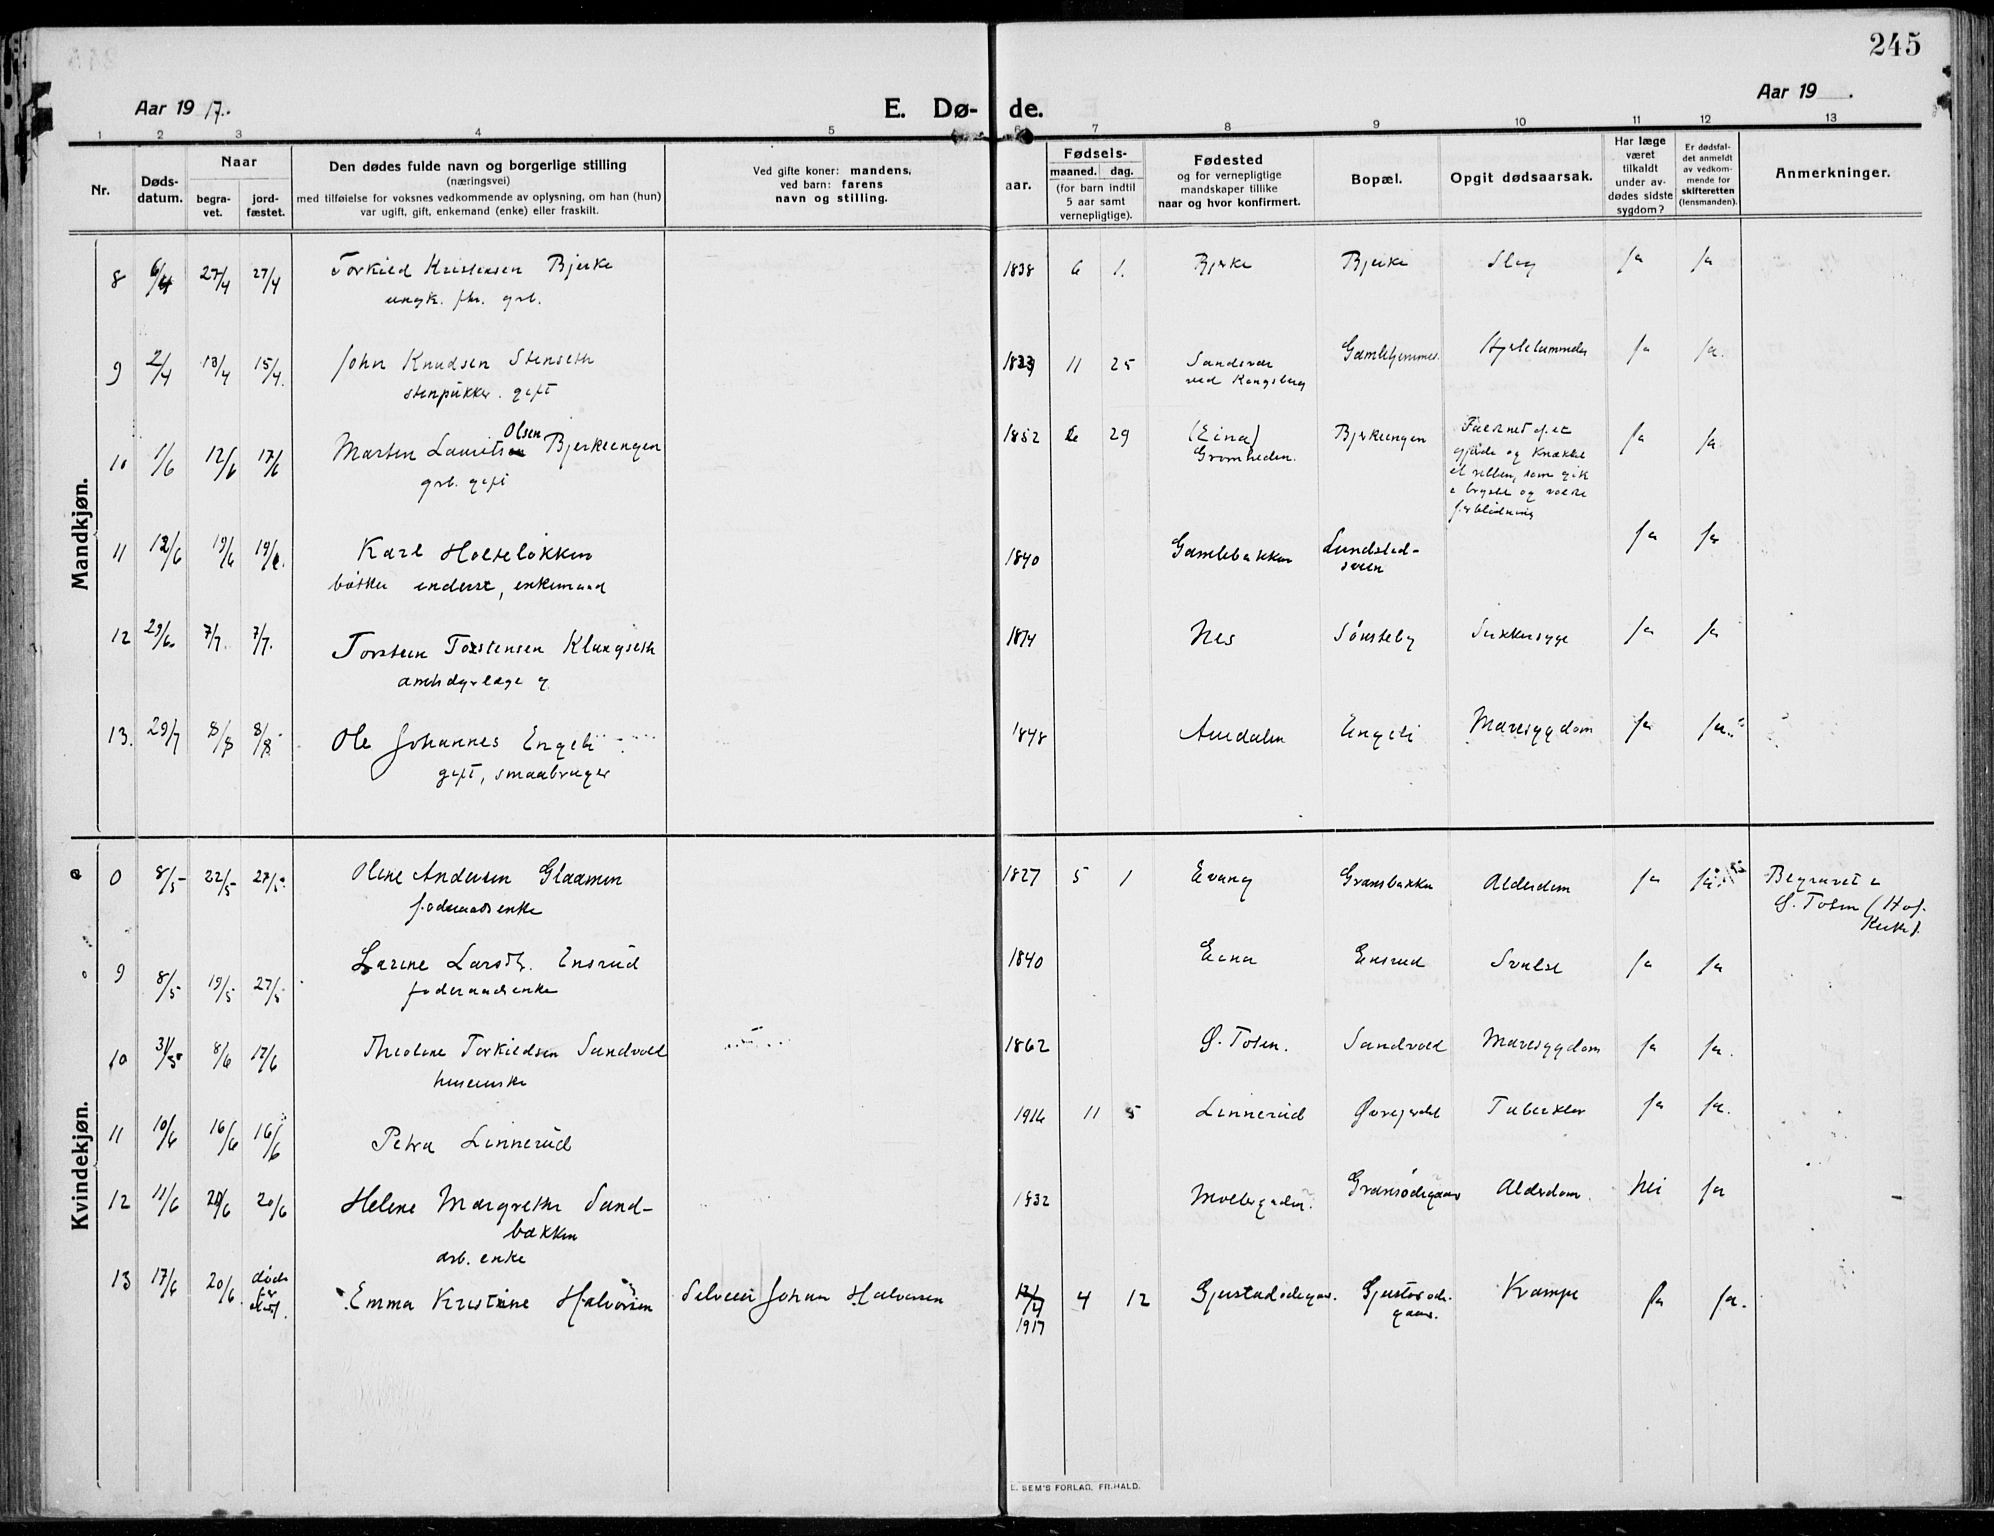 245
Aar 1917.
E. Dø-
de.
Aar 19 .
1 2 3 4 5 6 7 8 9 10 11 12 13
Nr.
Døds-
datum.
Naar
begra-
vet.
jord-
fæstet.
Den dødes fulde navn og borgerlige stilling
(næringsvei)
med tilføielse for voksnes vedkommende av oplysning, om han (hun)
var ugift, gift, enkemand (enke) eller fraskilt.
Ved gifte koner: mandens,
ved barn: farens
navn og stilling.
aar.
Fødsels-
maaned. dag.
(for barn indtil
5 aar samt
vernepligtige).
Fødested
og for vernepligtige
mandskaper tillike
naar og hvor konfirmert.
Bopæl.
Opgit dødsaarsak.
Har læge
været
tilkaldt
under av-
dødes sidste
sygdom?
Er dødsfal-
det anmeldt
av vedkom-
mende for
skifteretten
(lensmanden).
Anmerkninger.
Mandkjøn.
8 6/4 27/4 27/4 Torkild Kristensen Bjerke 1838 6 1. Bjerke Bjerke Slag ja ja
ungk. fhv. grb.
9 2/4 13/4 15/4. John Knudsen Stenseth 11 25 Sandsvær Gamlehjemmet ja ja.
stenpukker. gift ved Kongsberg
10 1/6 12/6 17/6 Marten Laurits Olsen Bjerkeengen 1852 29 (Eina) Bjerkeengen ja ja.
grb. gift Gromheden.
et ribben, som gik
i bryst og voldte
forblødning
11 12/6 19/6 19/6. Karl Holteløkken 1840 Gamlebakken Lundsted- ja ja
bøtker inderst, enkemand sveen
12 29/6. 7/7. 7/7. Torstein Torstensen Klungseth 1874 Nes Sønsteby Sukkersyge ja ja
amtsdyrlæge g
13. 29/7 8/8 8/8 Ole Johannes Engeli 1848 Aurdalen Engeli Mavesygdom ja ja
gift, smaabruger
Kvindekjøn.
8/5 22/5 27/5 Olene Andersen Glaamen 1827 5 1 Evang Gransbakken Alderdom ja ja Begravet i
foderaadsenke Ø. Toten (Hof
Kirke).
9 8/5 19/5 27/5 Larine Larsdtr. Ensrud 1840 Eina Ensrud Svulst ja ja
foderaadsenke
10 31/5 8/6 17/6 Theoline Torkildsen Sandvold 1862 Ø. Toten. Sandvold Mavesygdom ja ja.
husenke
11 10/6 16/6 16/6 Petra Linnerud 1916 11 5 Linnerud Tuberkler ja ja.
12 11/6 20/6 20/6 Helene Margrethe Sand- 1832 Gransødegaard Alderdom. Nei ja
bakken
arb. enke
13 17/6 20/6. døde Emma Kristine Halvorsen Johan Halvorsen 12/4 4 12 Gjestadødegaar. Krampe ja ja.
før 1917